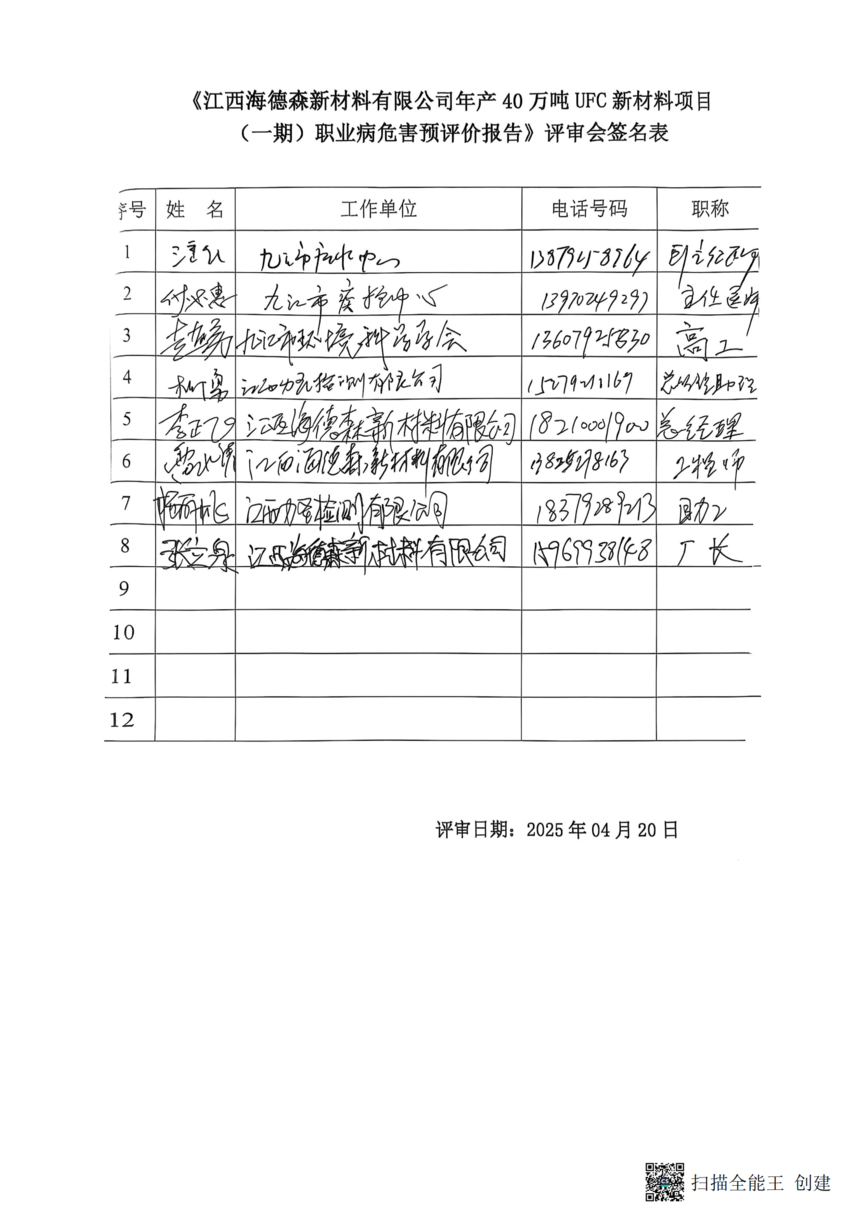 《江西海德森新材料有限公司年产 40 万吨 UFC 新材料项目
（一期）职业病危害预评价报告》评审会签名表
序号 姓 名 工作单位 电话号码 职称
1 九江市 中心
2 付必惠 九江市疾控中心 13970249297 主任医师
3 九江市环境科学学会 13607925830 高工
4 江西力圣检测有限公司 15279211167 总经理助理
5 李正飞 江西海德森新材料有限公司 18210001900 总经理
6 江西海德森新材料有限公司 工程师
7 江西力圣检测有限公司 18379289213 助工
8 张立泉 江西海德森新材料有限公司 15969938148 厂长
9
10
11
12
评审日期：2025 年 04 月 20 日
扫描全能王 创建